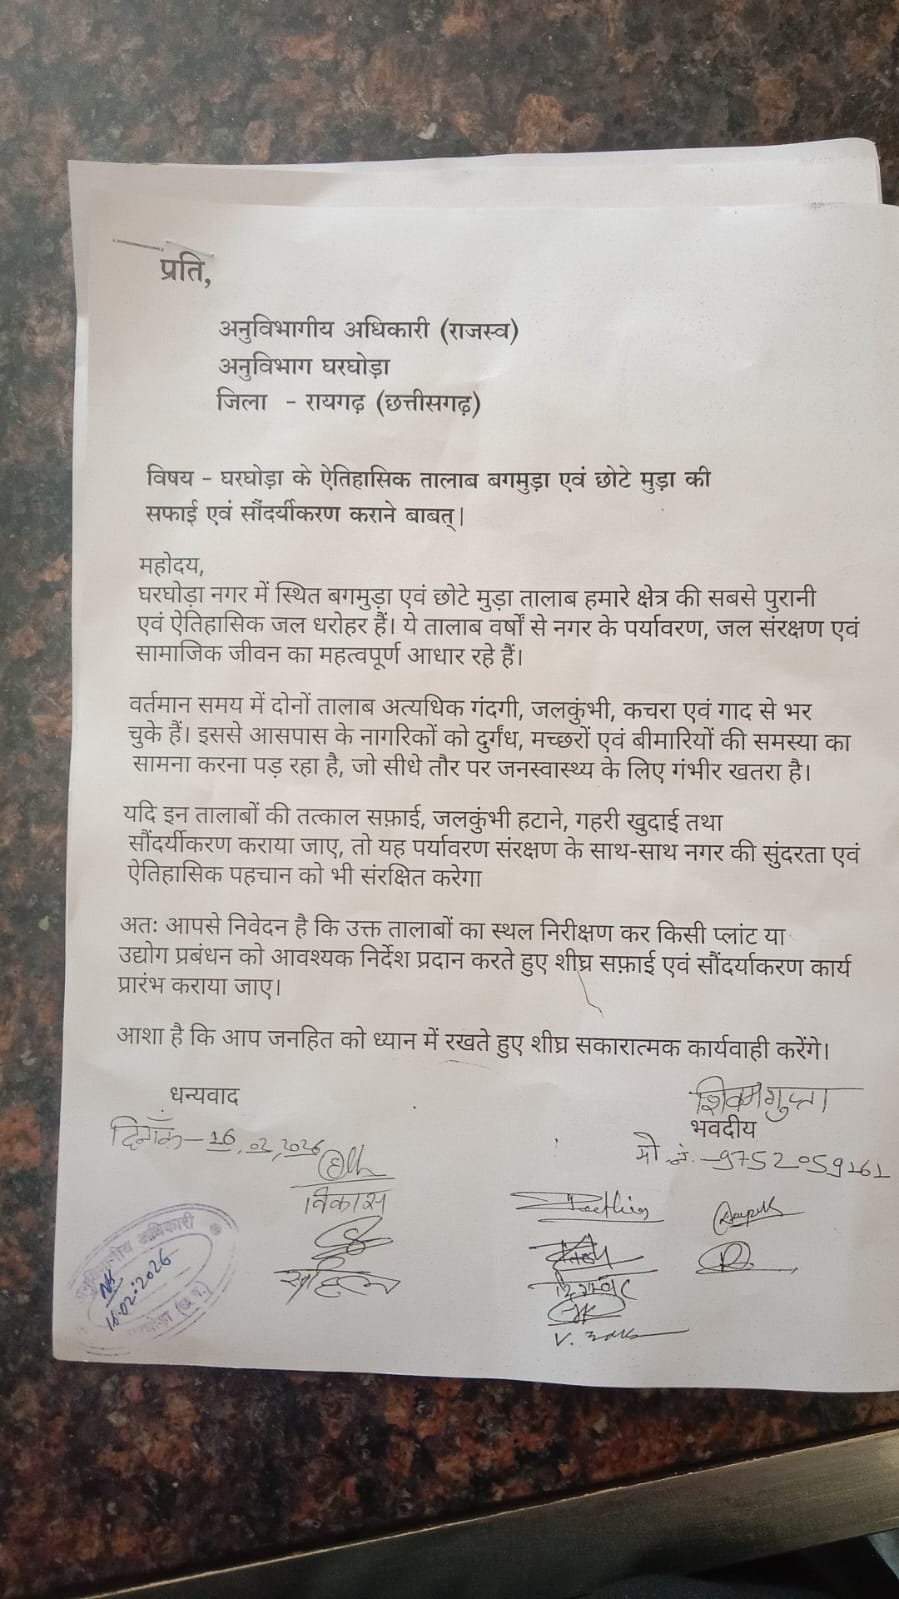 प्रति,
अनुविभागीय अधिकारी (राजस्व)
अनुविभाग घरघोड़ा
जिला - रायगढ़ (छत्तीसगढ़)
विषय - घरघोड़ा के ऐतिहासिक तालाब बगमुड़ा एवं छोटे मुड़ा की
सफाई एवं सौंदर्यीकरण कराने बाबत्।
महोदय,
घरघोड़ा नगर में स्थित बगमुड़ा एवं छोटे मुड़ा तालाब हमारे क्षेत्र की सबसे पुरानी
एवं ऐतिहासिक जल धरोहर हैं। ये तालाब वर्षों से नगर के पर्यावरण, जल संरक्षण एवं
सामाजिक जीवन का महत्वपूर्ण आधार रहे हैं।
वर्तमान समय में दोनों तालाब अत्यधिक गंदगी, जलकुंभी, कचरा एवं गाद से भर
चुके हैं। इससे आसपास के नागरिकों को दुर्गंध, मच्छरों एवं बीमारियों की समस्या का
सामना करना पड़ रहा है, जो सीधे तौर पर जनस्वास्थ्य के लिए गंभीर खतरा है।
यदि इन तालाबों की तत्काल सफ़ाई, जलकुंभी हटाने, गहरी खुदाई तथा
सौंदर्यीकरण कराया जाए, तो यह पर्यावरण संरक्षण के साथ-साथ नगर की सुंदरता एवं
ऐतिहासिक पहचान को भी संरक्षित करेगा
अतः आपसे निवेदन है कि उक्त तालाबों का स्थल निरीक्षण कर किसी प्लांट या
उद्योग प्रबंधन को आवश्यक निर्देश प्रदान करते हुए शीघ्र सफ़ाई एवं सौंदर्याकरण कार्य
प्रारंभ कराया जाए।
आशा है कि आप जनहित को ध्यान में रखते हुए शीघ्र सकारात्मक कार्यवाही करेंगे।
धन्यवाद
शिवम गुप्ता
भवदीय
दिनाँक - 16.02.2026
मो नं. - 9752059161
विकास
अनुविभागीय अधिकारी
16.02.2026